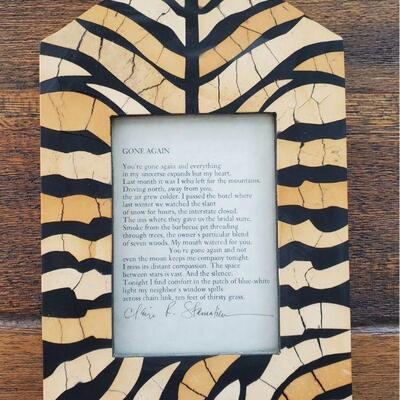 GONE AGAIN
You're gone again and everything
in my universe expands but my heart.
Last month it was I who left for the mountains.
Driving north, away from you,
the air grew colder. I passed the hotel where
last winter we watched the slant
of snow for hours, the interstate closed.
The inn where they gave us the bridal suite.
Smoke from the barbecue pit threading
through trees, the owner's particular blend
of seven woods. My mouth watered for you.
You're gone again and not
even the moon keeps me company tonight.
I miss its distant compassion. The space
between stars is vast. And the silence.
Tonight I find comfort in the patch of blue-white
light my neighbor's window spills
across chain link, ten feet of thirsty grass.
R.